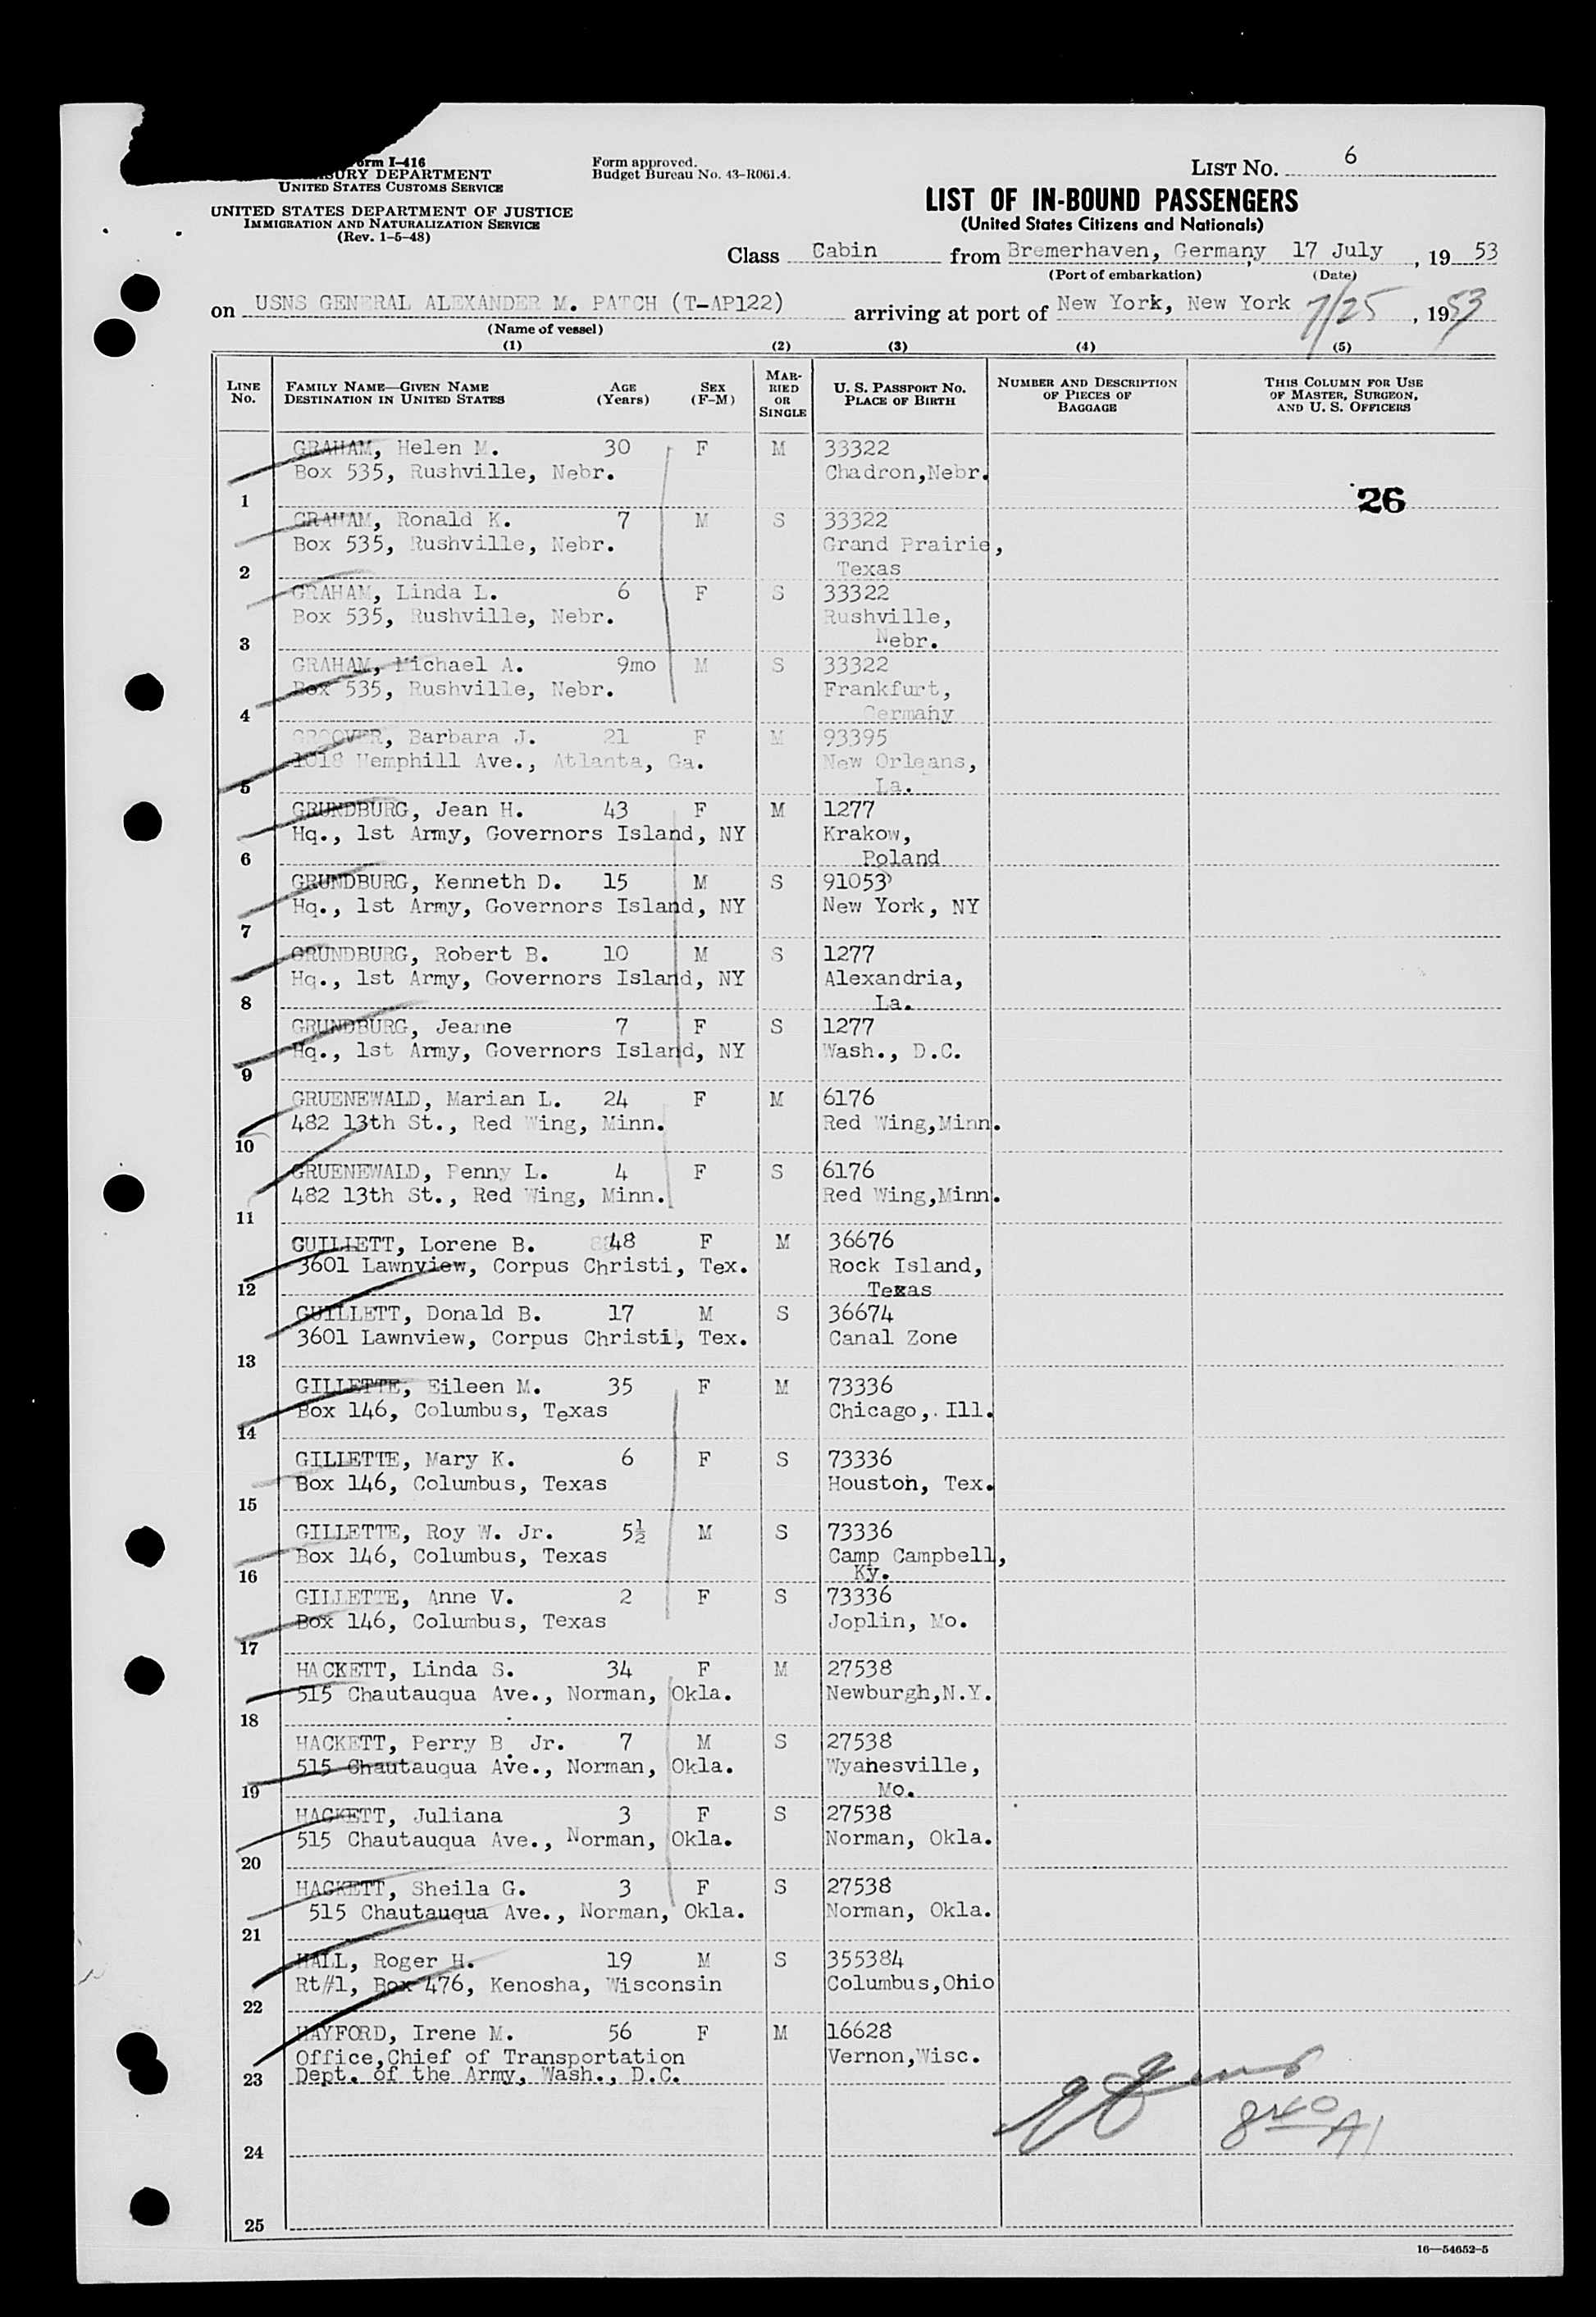 Form I-416
TREASURY DEPARTMENT
UNITED STATES CUSTOMS SERVICE
UNITED STATES DEPARTMENT OF JUSTICE
IMMIGRATION AND NATURALIZATION SERVICE
(Rev. 1-5-48)
Form approved.
Budget Bureau No. 43-R061.4.
LIST No. 6
LIST OF IN-BOUND PASSENGERS
(United States Citizens and Nationals)
Class Cabin from Bremerhaven, Germany, 17 July, 19 53
(Port of embarkation) (Date)
on USNS GENERAL ALEXANDER M. PATCH (T-AP122) arriving at port of New York, New York 7/25, 1953
(Name of vessel)
(1) (2) (3) (4) (5)
LINE No. FAMILY NAME—GIVEN NAME DESTINATION IN UNITED STATES AGE (Years) SEX (F-M) MARRIED OR SINGLE U. S. PASSPORT No. PLACE OF BIRTH NUMBER AND DESCRIPTION OF PIECES OF BAGGAGE THIS COLUMN FOR USE OF MASTER, SURGEON, AND U. S. OFFICERS
GRAHAM, Helen M. 30 F M 33322
Box 535, Rushville, Nebr. Chadron,Nebr.
1 26
GRAHAM, Ronald K. 7 M S 33322
Box 535, Rushville, Nebr. Grand Prairie,
2 Texas
GRAHAM, Linda L. 6 F S 33322
Box 535, Rushville, Nebr. Rushville,
3 Nebr.
GRAHAM, Michael A. 9mo M S 33322
Box 535, Rushville, Nebr. Frankfurt,
4 Germany
GROOVER, Barbara J. 21 F M 93395
1018 Hemphill Ave., Atlanta, Ga. New Orleans,
5 La.
GRUNDBURG, Jean H. 43 F M 1277
Hq., 1st Army, Governors Island, NY Krakow,
6 Poland
GRUNDBURG, Kenneth D. 15 M S 91053
Hq., 1st Army, Governors Island, NY New York, NY
7
GRUNDBURG, Robert B. 10 M S 1277
Hq., 1st Army, Governors Island, NY Alexandria,
8 La.
GRUNDBURG, Jeanne 7 F S 1277
Hq., 1st Army, Governors Island, NY Wash., D.C.
9
GRUENEWALD, Marian L. 24 F M 6176
482 13th St., Red Wing, Minn. Red Wing,Minn.
10
GRUENEWALD, Penny L. 4 F S 6176
482 13th St., Red Wing, Minn. Red Wing,Minn.
11
GUILLETT, Lorene B. 48 F M 36676
3601 Lawnview, Corpus Christi, Tex. Rock Island,
12 Texas
GUILLETT, Donald B. 17 M S 36674
3601 Lawnview, Corpus Christi, Tex. Canal Zone
13
GILLETTE, Eileen M. 35 F M 73336
Box 146, Columbus, Texas Chicago, Ill.
14
GILLETTE, Mary K. 6 F S 73336
Box 146, Columbus, Texas Houston, Tex.
15
GILLETTE, Roy W. Jr. 5½ M S 73336
Box 146, Columbus, Texas Camp Campbell,
16 Ky.
GILLETTE, Anne V. 2 F S 73336
Box 146, Columbus, Texas Joplin, Mo.
17
HACKETT, Linda S. 34 F M 27538
515 Chautauqua Ave., Norman, Okla. Newburgh,N.Y.
18
HACKETT, Perry B. Jr. 7 M S 27538
515 Chautauqua Ave., Norman, Okla. Wyanesville,
19 Mo.
HACKETT, Juliana 3 F S 27538
515 Chautauqua Ave., Norman, Okla. Norman, Okla.
20
HACKETT, Sheila G. 3 F S 27538
515 Chautauqua Ave., Norman, Okla. Norman, Okla.
21
HALL, Roger H. 19 M S 355384
Rt#1, Box 476, Kenosha, Wisconsin Columbus,Ohio
22
HAYFORD, Irene M. 56 F M 16628
Office,Chief of Transportation Vernon,Wisc.
23 Dept. of the Army, Wash., D.C.
840
24
25
16—54652-5